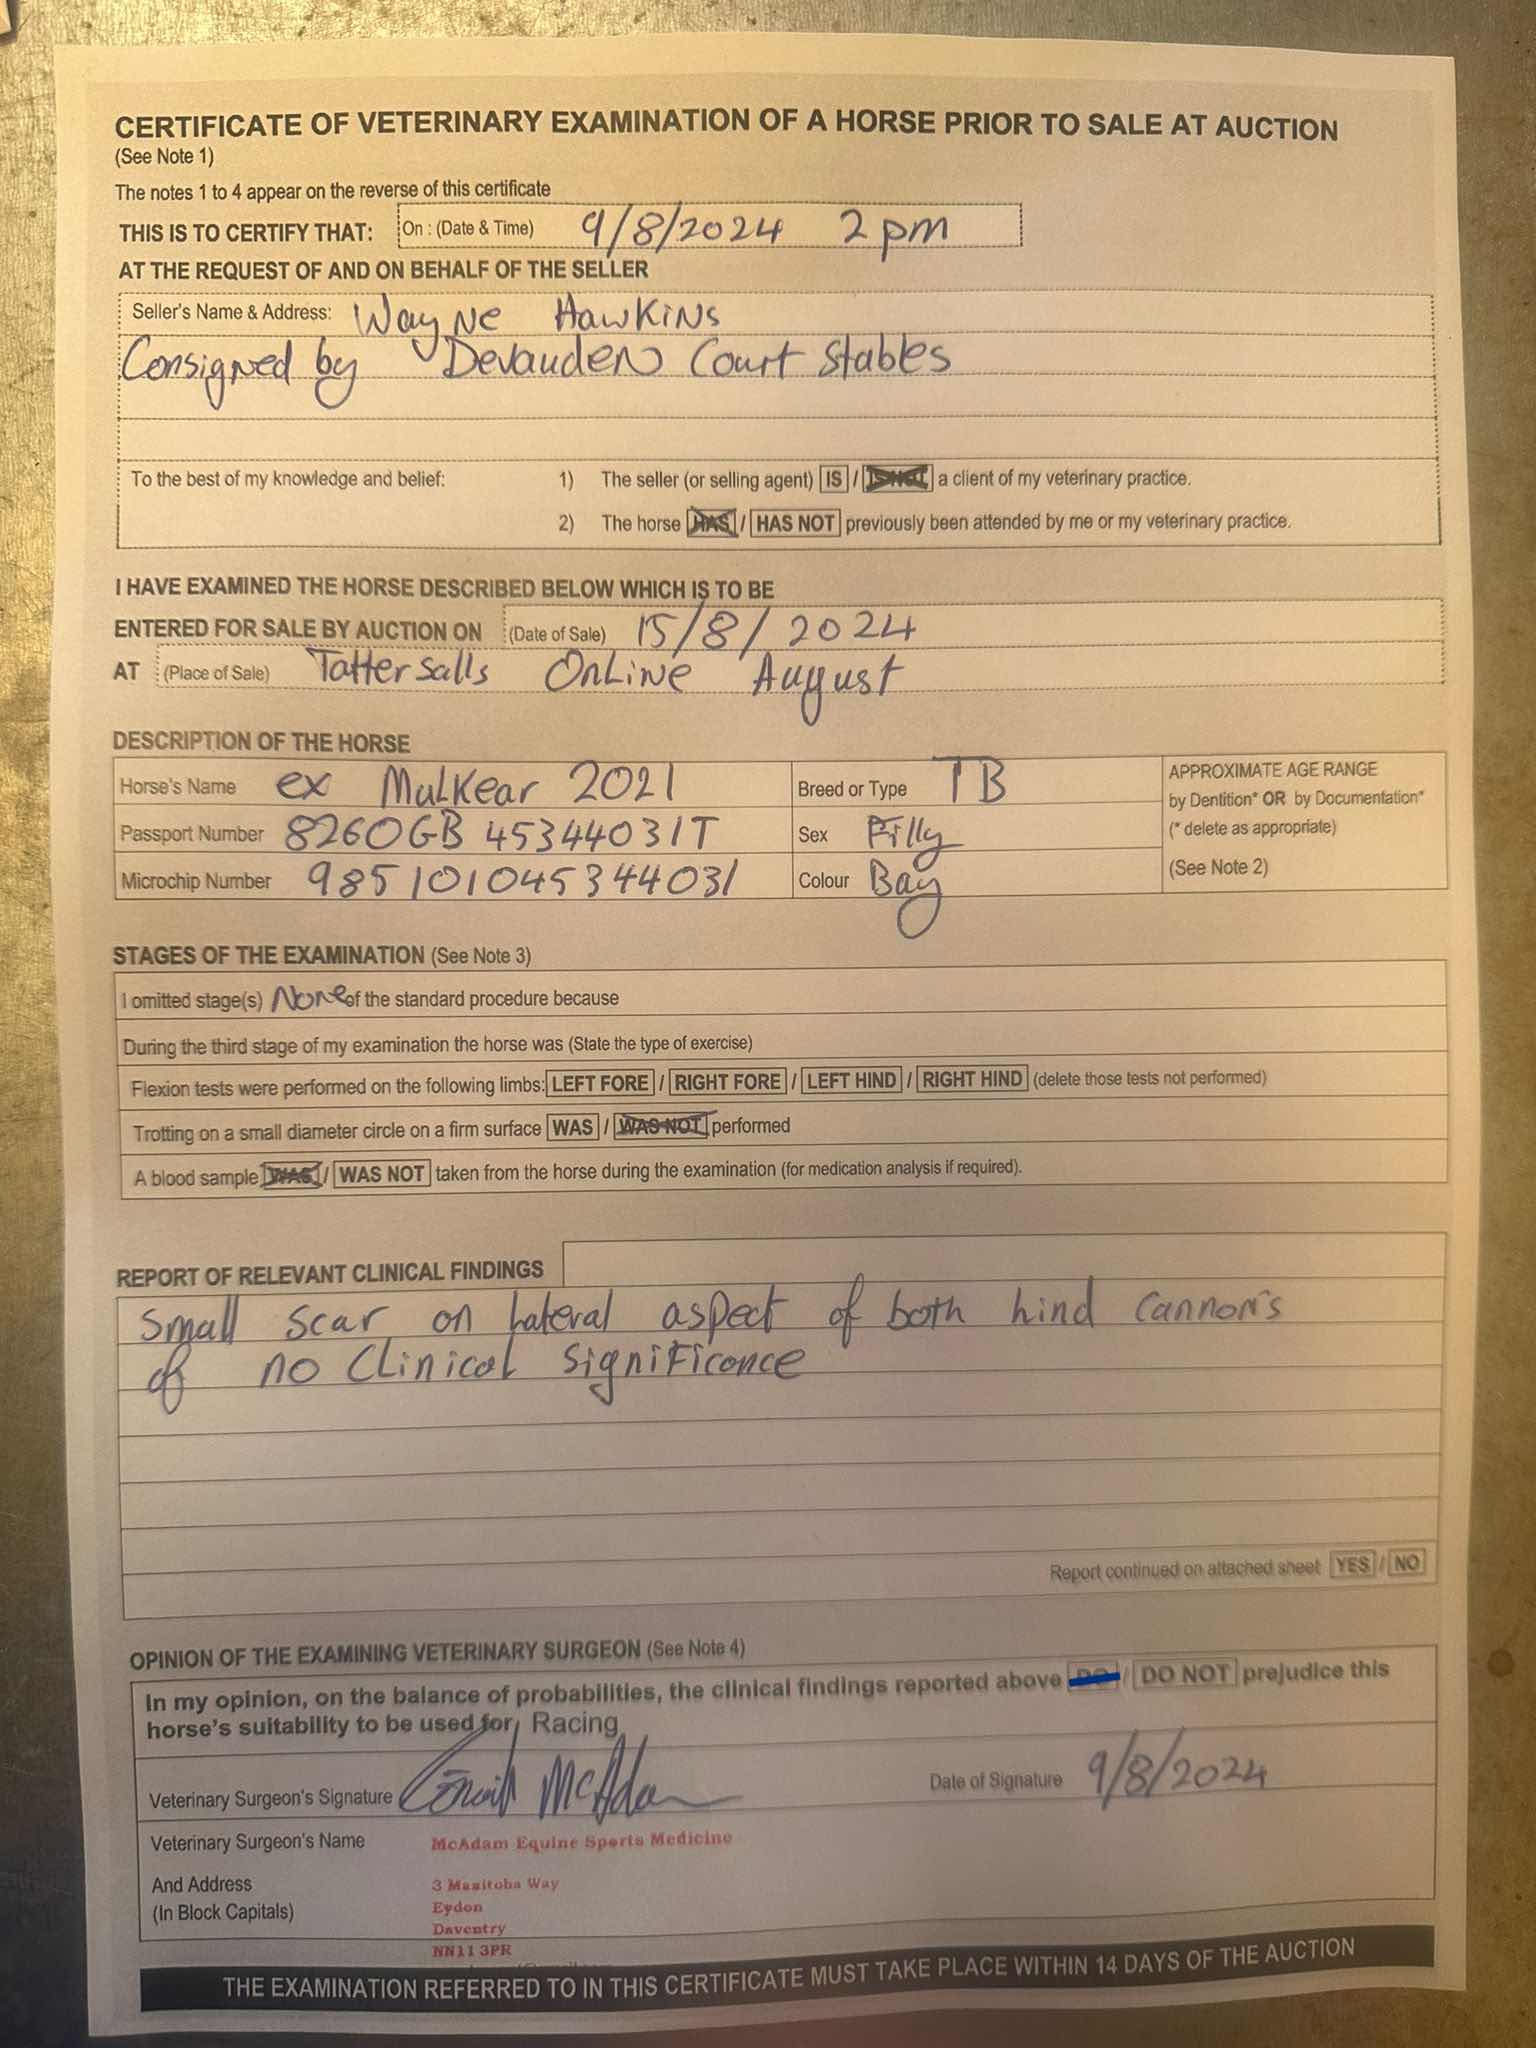 CERTIFICATE OF VETERINARY EXAMINATION OF A HORSE PRIOR TO SALE AT AUCTION
(See Note 1)
The notes 1 to 4 appear on the reverse of this certificate
THIS IS TO CERTIFY THAT: On : (Date & Time) 9/8/2024 2pm
AT THE REQUEST OF AND ON BEHALF OF THE SELLER
Seller's Name & Address: Wayne Hawkins
Consigned by Devauden Court Stables
To the best of my knowledge and belief: 1) The seller (or selling agent) IS / IS NOT a client of my veterinary practice.
2) The horse HAS / HAS NOT previously been attended by me or my veterinary practice.
I HAVE EXAMINED THE HORSE DESCRIBED BELOW WHICH IS TO BE
ENTERED FOR SALE BY AUCTION ON (Date of Sale) 15/8/2024
AT (Place of Sale) Tattersalls Online August
DESCRIPTION OF THE HORSE
Horse's Name ex Mulkear 2021 Breed or Type TB APPROXIMATE AGE RANGE
by Dentition* OR by Documentation*
Passport Number 8260GB45344031T Sex Filly (* delete as appropriate)
Microchip Number 985101045344031 Colour Bay (See Note 2)
STAGES OF THE EXAMINATION (See Note 3)
I omitted stage(s) None of the standard procedure because
During the third stage of my examination the horse was (State the type of exercise)
Flexion tests were performed on the following limbs: LEFT FORE / RIGHT FORE / LEFT HIND / RIGHT HIND (delete those tests not performed)
Trotting on a small diameter circle on a firm surface WAS / WAS NOT performed
A blood sample WAS / WAS NOT taken from the horse during the examination (for medication analysis if required).
REPORT OF RELEVANT CLINICAL FINDINGS
Small scar on lateral aspect of both hind cannons
of no clinical significance
Report continued on attached sheet YES / NO
OPINION OF THE EXAMINING VETERINARY SURGEON (See Note 4)
In my opinion, on the balance of probabilities, the clinical findings reported above DO / DO NOT prejudice this
horse's suitability to be used for Racing
Veterinary Surgeon's Signature McAdam Date of Signature 9/8/2024
Veterinary Surgeon's Name McAdam Equine Sports Medicine
And Address 3 Manitoba Way
(In Block Capitals) Eydon
Daventry
NN11 3PR
THE EXAMINATION REFERRED TO IN THIS CERTIFICATE MUST TAKE PLACE WITHIN 14 DAYS OF THE AUCTION